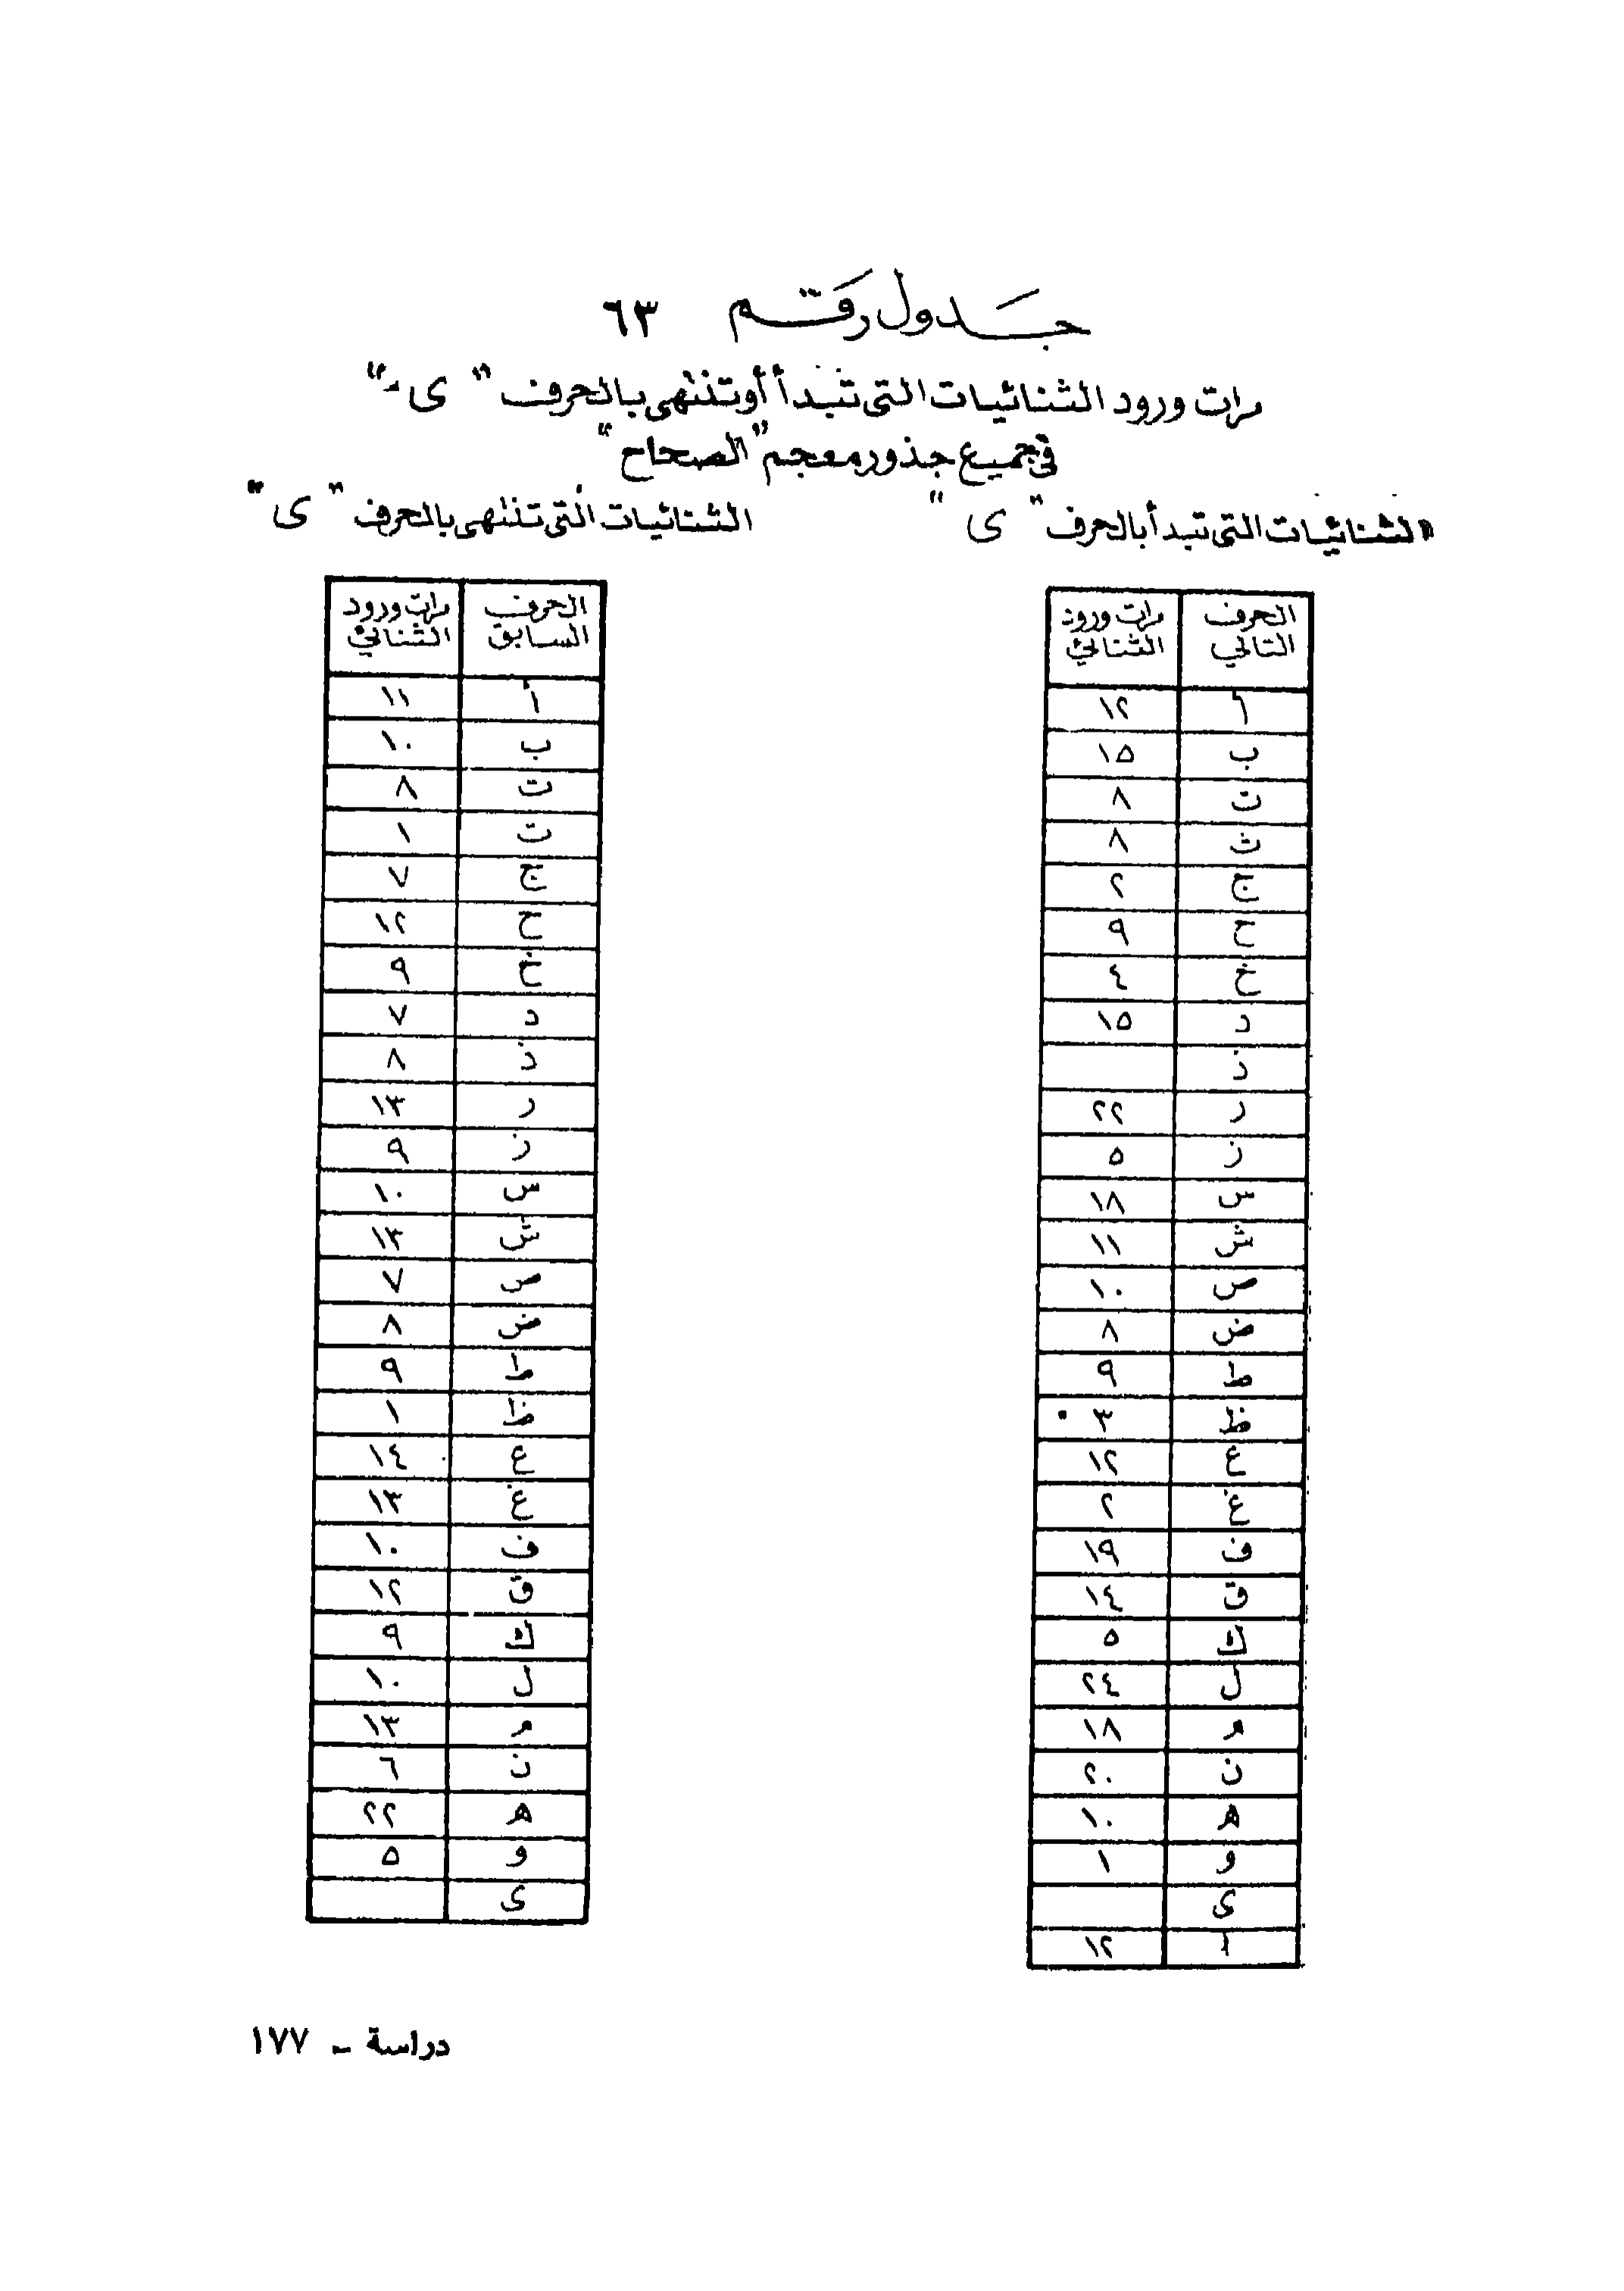 جدول رقم ٦٣
مرات ورود الثنائيات التى تبدأ أو تنتهى بالحرف " ى "
فى جميع جذور معجم "الصحاح"
الثنائيات التى تبدأ بالحرف " ى "
الحرف التالي مرات ورود الثنائي
أ ١٢
ب ١٥
ت ٨
ث ٨
ج ٢
ح ٩
خ ٤
د ١٥
ذ
ر ٢٢
ز ٥
س ١٨
ش ١١
ص ١٠
ض ٨
ط ٩
ظ ٣
ع ١٢
غ ٢
ف ١٩
ق ١٤
ك ٥
ل ٢٤
م ١٨
ن ٢٠
ه ١٠
و ١
ى
أ ١٢
الثنائيات التى تنتهى بالحرف " ى "
الحرف السابق مرات ورود الثنائي
أ ١١
ب ١٠
ت ٨
ث ١
ج ٧
ح ١٢
خ ٩
د ٧
ذ ٨
ر ١٣
ز ٩
س ١٠
ش ١٣
ص ٧
ض ٨
ط ٩
ظ ١
ع ١٤
غ ١٣
ف ١٠
ق ١٢
ك ٩
ل ١٠
م ١٣
ن ٦
ه ٢٢
و ٥
ى
دراسة - ١٧٧